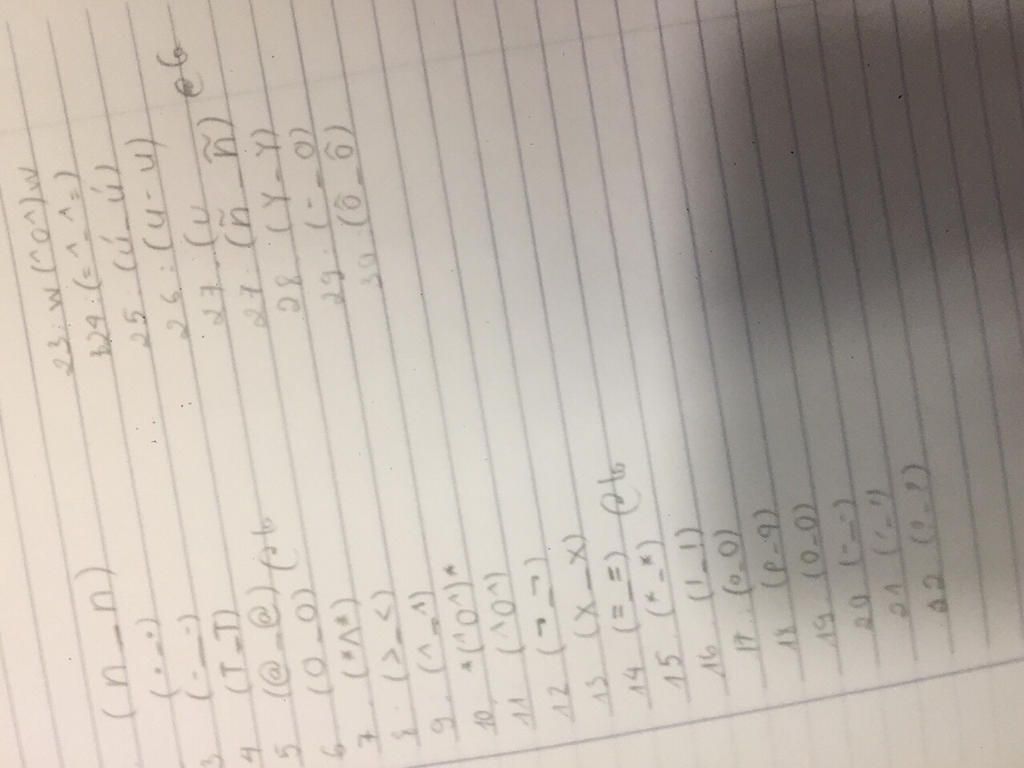 (n_n)
(•_•)
3 (-_-)
4 (T_T)
5 (@_@)
6 (O_O)
7 (*^*)
8. (>_<)
9. (^_^)
10. *(^O^)*
11 (^O^)
12 (¬_¬)
13. (x_x)
14 (=_=)
15 (*_*)
16. (!_!)
17. (o_O)
18 (p_q)
19 (0_0)
20 (-_-)
21 ('_')
22 (°_?)
23. w(^O^)w
24. (=^_^=)
25. (ú_ú)
26. (u-u)
27. (u
27. (ñ_ñ)
28 (Y_Y)
29. (-_O)
30. (ô_ô)